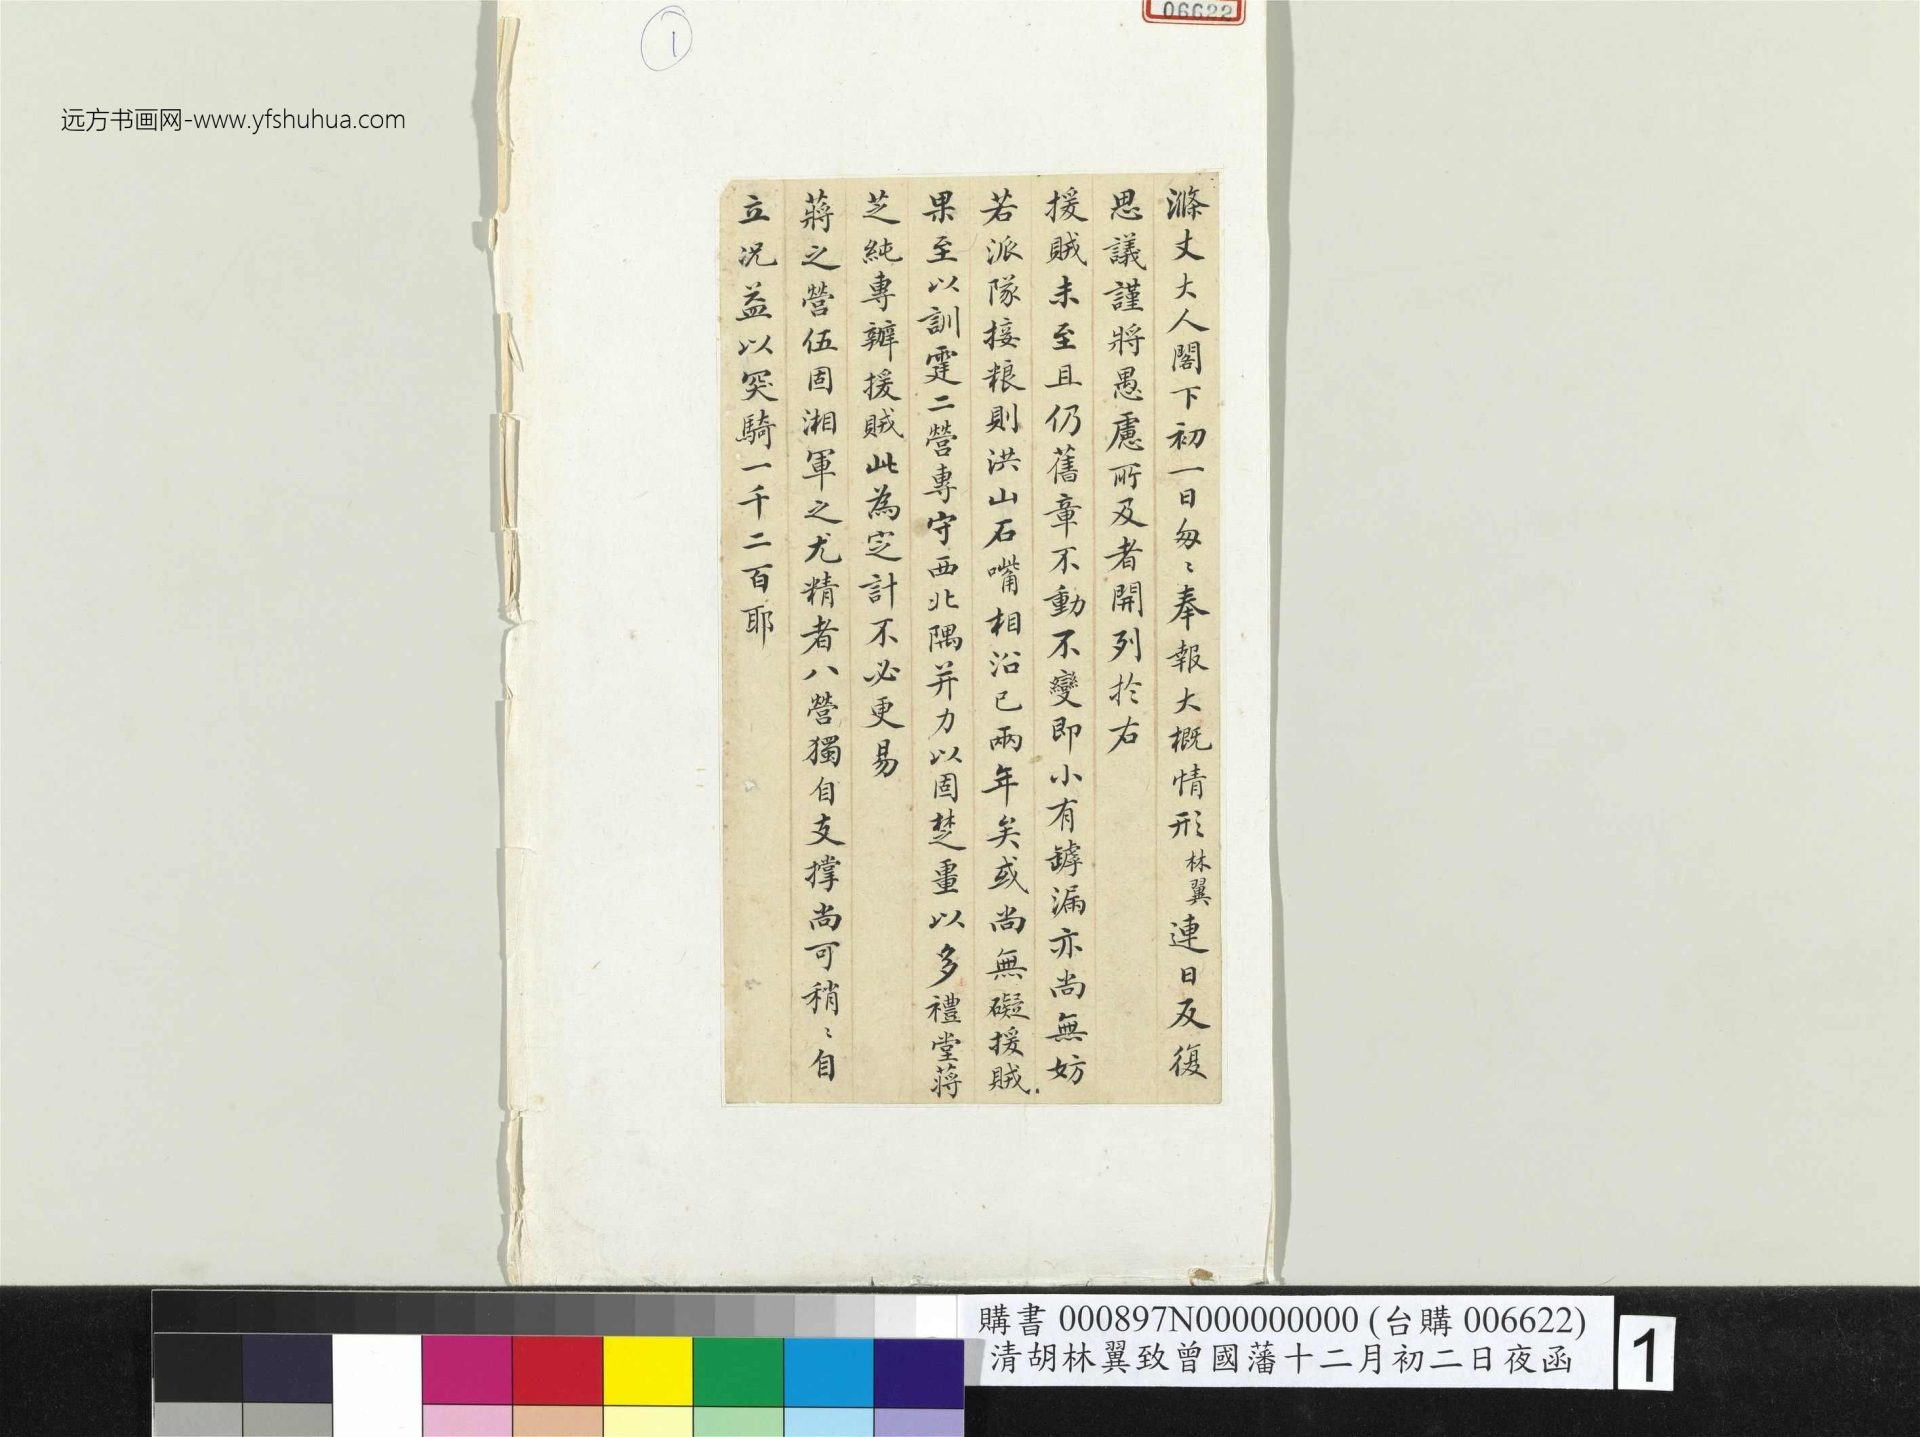 06622
1
远方书画网-www.yfshuhua.com
滌丈大人閣下初一日匆〻奉報大概情形林翼連日反復
思議謹將愚慮所及者開列於右
援賊未至且仍舊章不動不變即小有罅漏亦尚無妨
若派隊接粮則洪山石嘴相沿已兩年矣或尚無礙援賊
果至以訓霆二營專守西北隅并力以固楚畺以多禮堂蔣
芝純專辦援賊此為定計不必更易
蔣之營伍固湘軍之尤精者八營獨自支撐尚可稍〻自
立况益以突騎一千二百耶
購書 000897N000000000 (台購 006622)
清胡林翼致曾國藩十二月初二日夜函
1